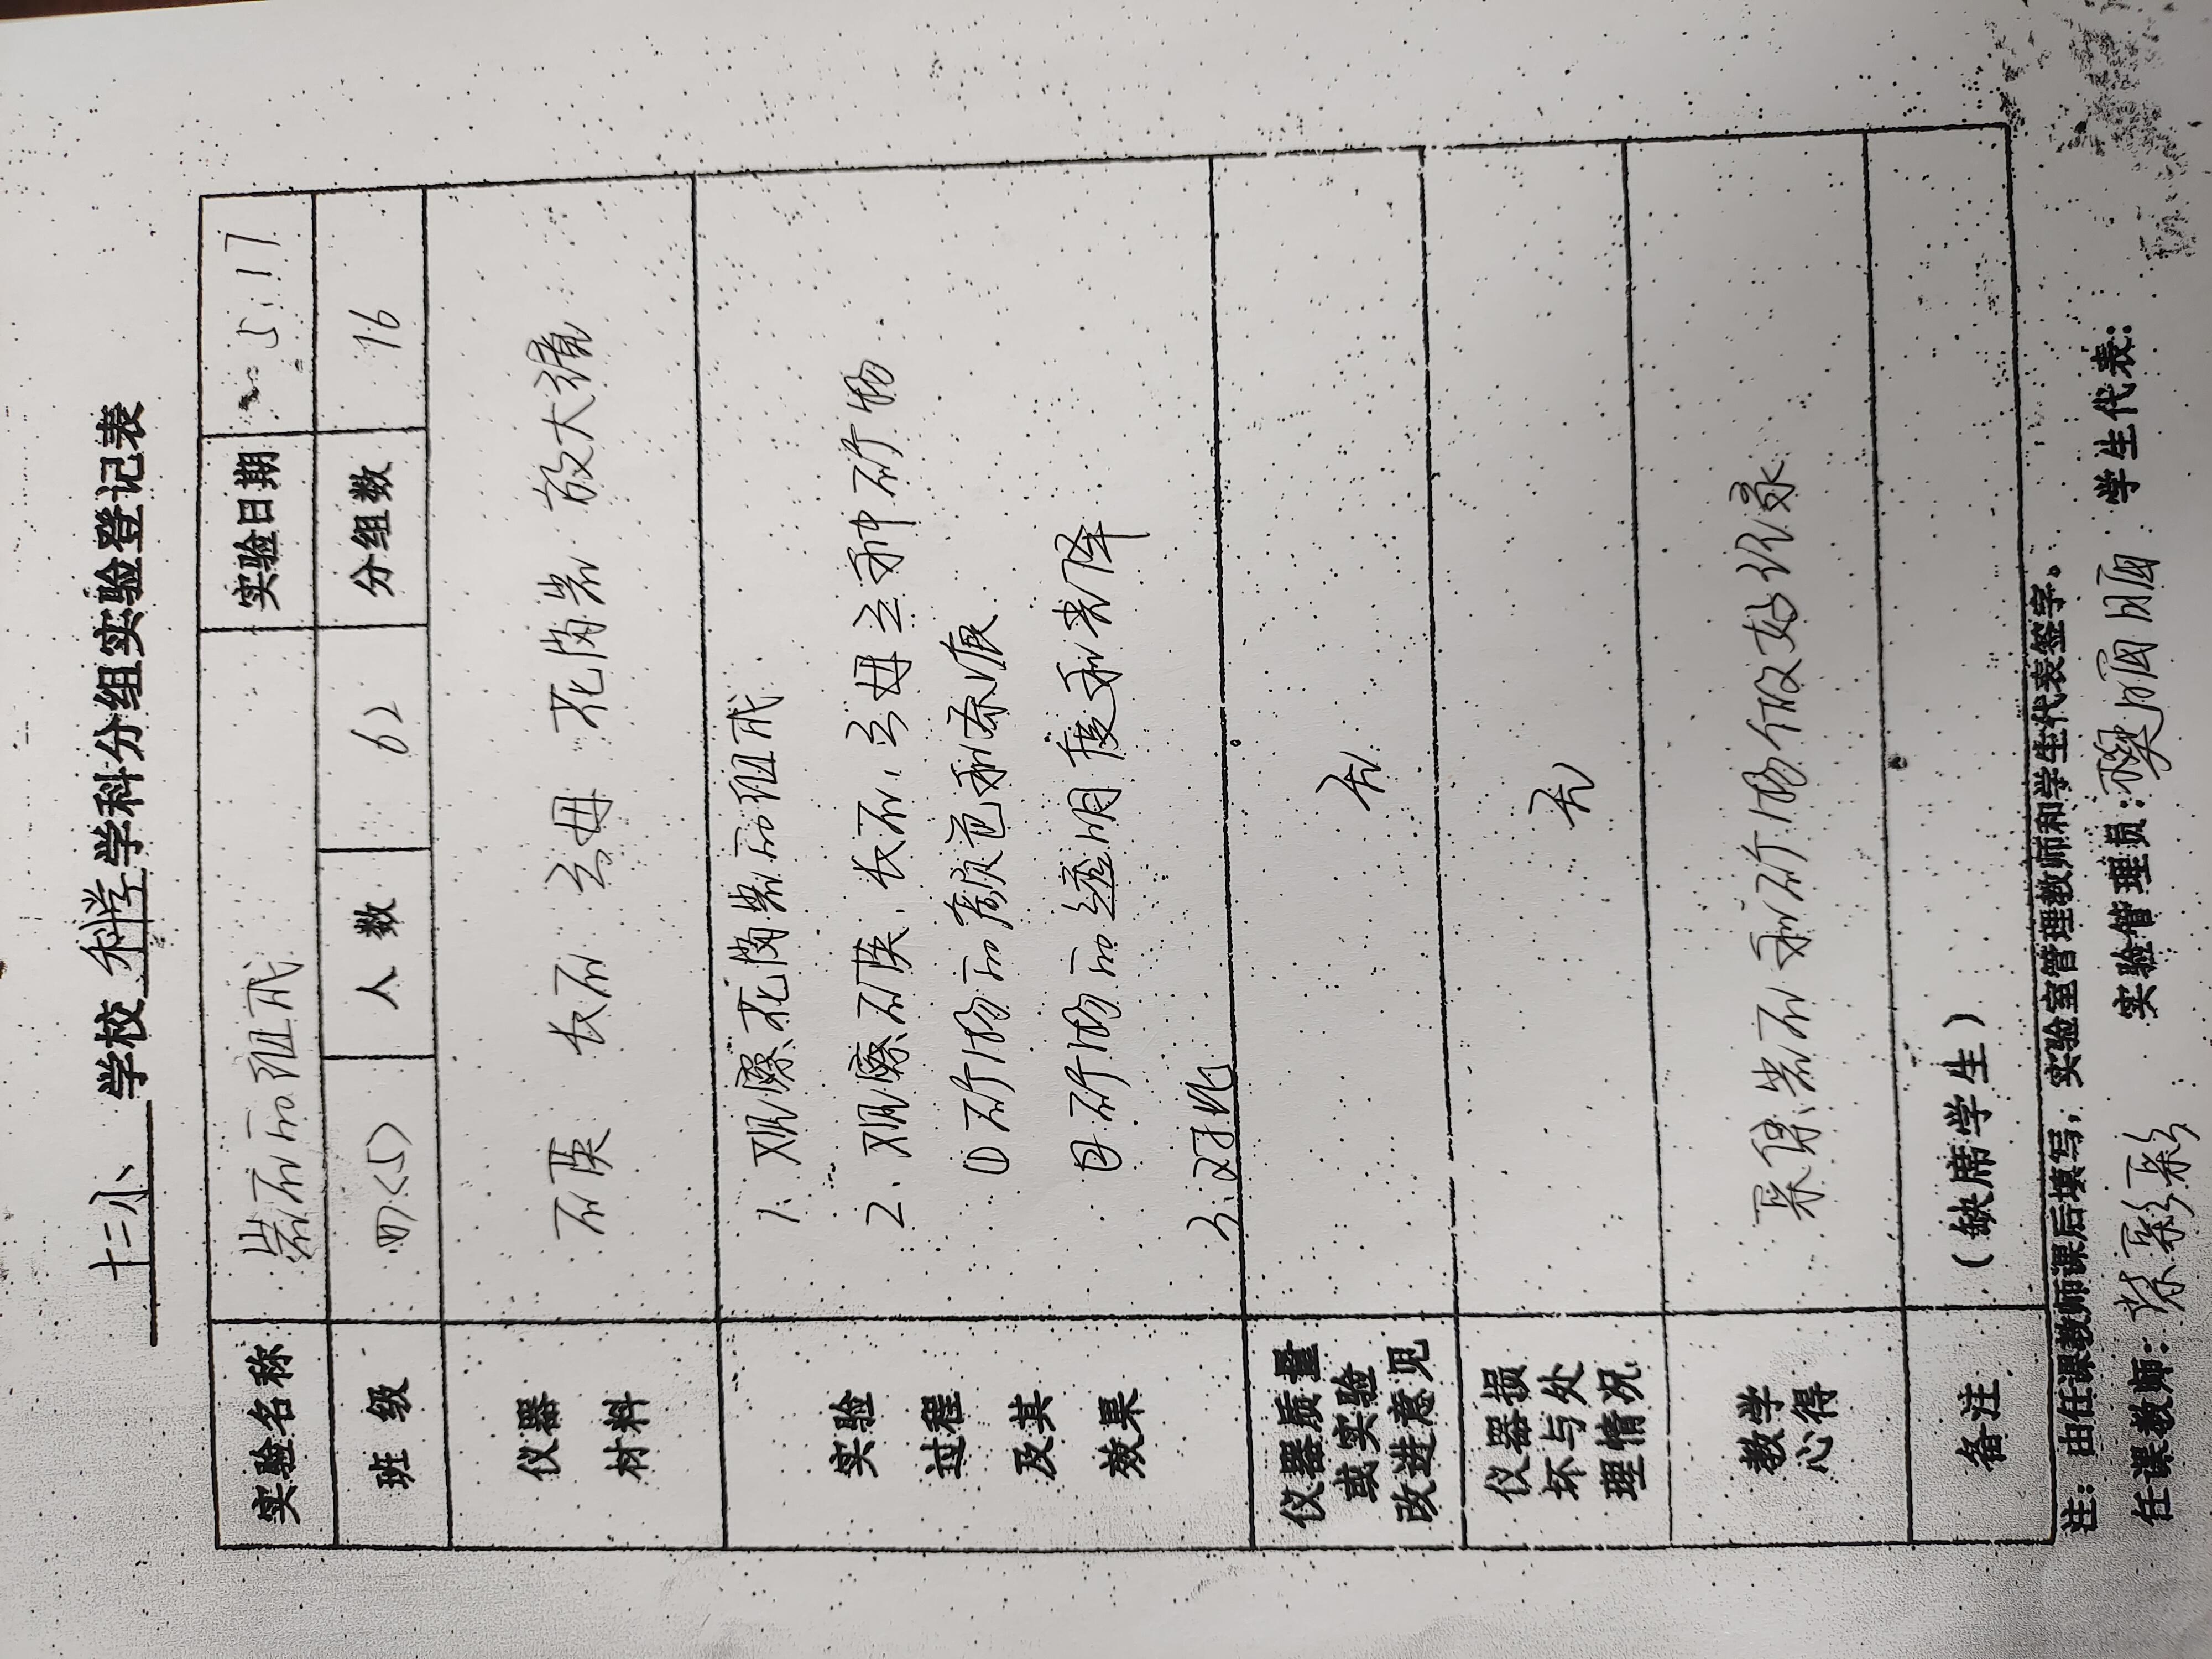 十二小 学校 科学 学科分组实验登记表
实验名称 岩石的组成 实验日期 5.17
班级 四<5> 人数 62 分组数 16
仪器材料 石英 长石 云母 花岗岩 放大镜
实验过程及其效果
1. 观察花岗岩的组成
2. 观察石英、长石、云母三种矿物
① 矿物的颜色和条痕
② 矿物的透明度和光泽
3. 对比
仪器质量或实验改进意见 无
仪器损坏与处理情况 无
教学心得 采集岩石和矿物做好记录
备注 (缺席学生)
注：由任课教师课后填写；实验室管理教师和学生代表签字。
任课教师： 彩彩 实验管理员：梁丽丽 学生代表：